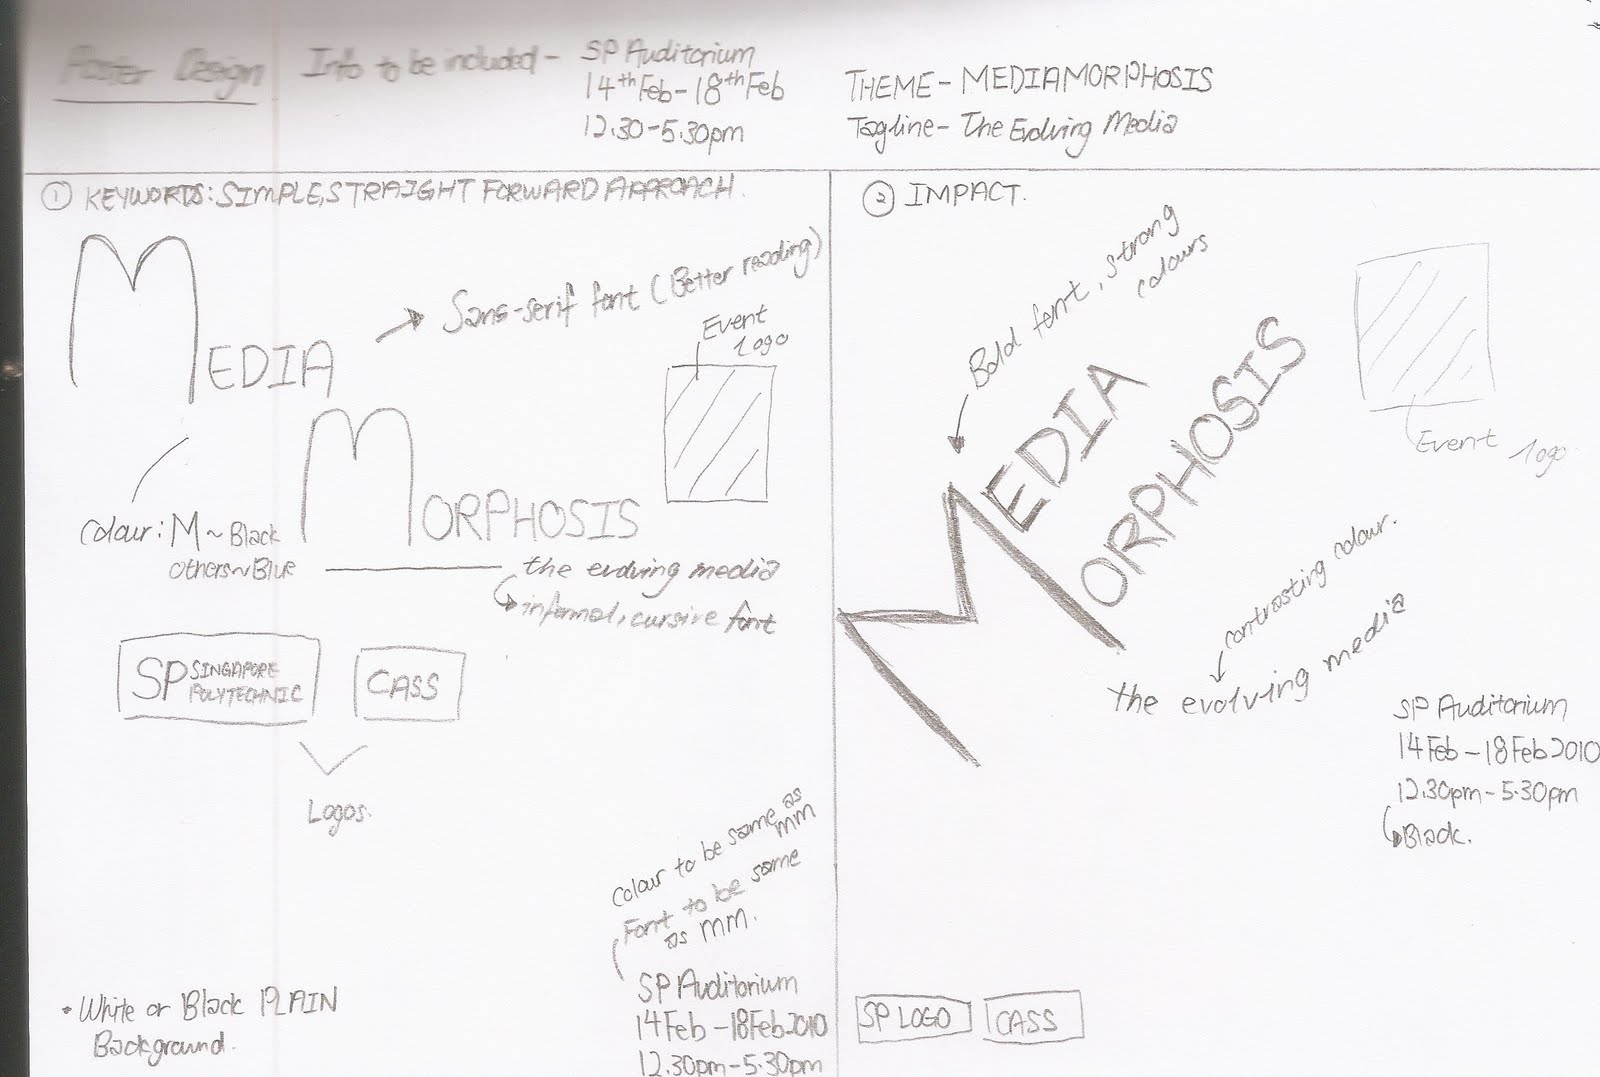 Poster Design
Info to be included -
SP Auditorium
14th Feb - 18th Feb
12.30 - 5.30pm
THEME - MEDIAMORPHOSIS
Tagline - The Evolving Media
① KEYWORDS: SIMPLE, STRAIGHT FORWARD APPROACH.
MEDIA
MORPHOSIS
→ Sans-serif font (Better reading)
Event
logo
Colour: M ~ Black
others ~ Blue
the evolving media
informal, cursive font
SP SINGAPORE
POLYTECHNIC
CASS
Logos.
Colour to be same as
MM
Font to be same
as MM.
SP Auditorium
14 Feb - 18 Feb 2010
12.30pm - 5.30pm
• White or Black PLAIN
Background.
② IMPACT.
Bold font, strong
colours
MEDIA
MORPHOSIS
Event logo
contrasting colour.
the evolving media
SP Auditorium
14 Feb - 18 Feb 2010
12.30pm - 5.30pm
Black.
SP LOGO
CASS